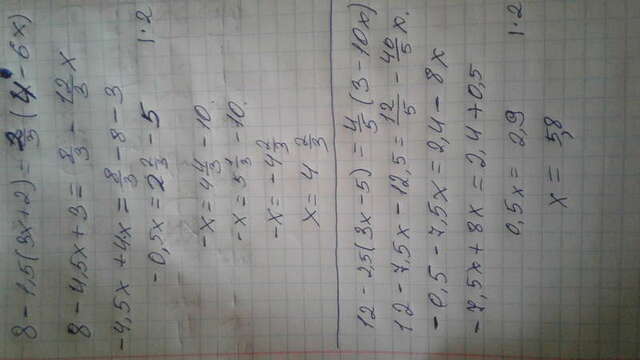 8 - 1,5(3x+2) = 2/3 (4 - 6x)
8 - 4,5x + 3 = 8/3 - 12/3 x
-4,5x + 4x = 8/3 - 8 - 3
-0,5x = 2 2/3 - 5 | · 2
-x = 4 4/3 - 10
-x = 5 1/3 - 10.
-x = -4 2/3
x = 4 2/3
12 - 2,5(3x - 5) = 4/5 (3 - 10x)
12 - 7,5x - 12,5 = 12/5 - 40/5 x.
-0,5 - 7,5x = 2,4 - 8x
-7,5x + 8x = 2,4 + 0,5
0,5x = 2,9 | · 2
x = 5,8